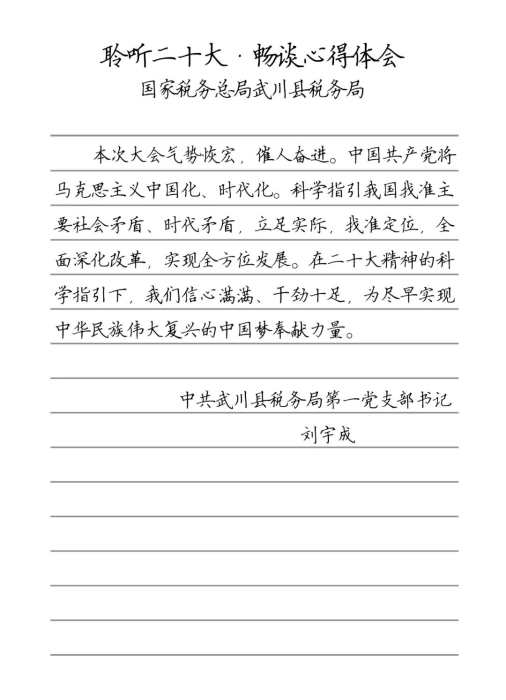 聆听二十大·畅谈心得体会
国家税务总局武川县税务局
本次大会气势恢宏，催人奋进。中国共产党将
马克思主义中国化、时代化。科学指引我国找准主
要社会矛盾、时代矛盾，立足实际，找准定位，全
面深化改革，实现全方位发展。在二十大精神的科
学指引下，我们信心满满、干劲十足，为尽早实现
中华民族伟大复兴的中国梦奉献力量。
中共武川县税务局第一党支部书记
刘宇成